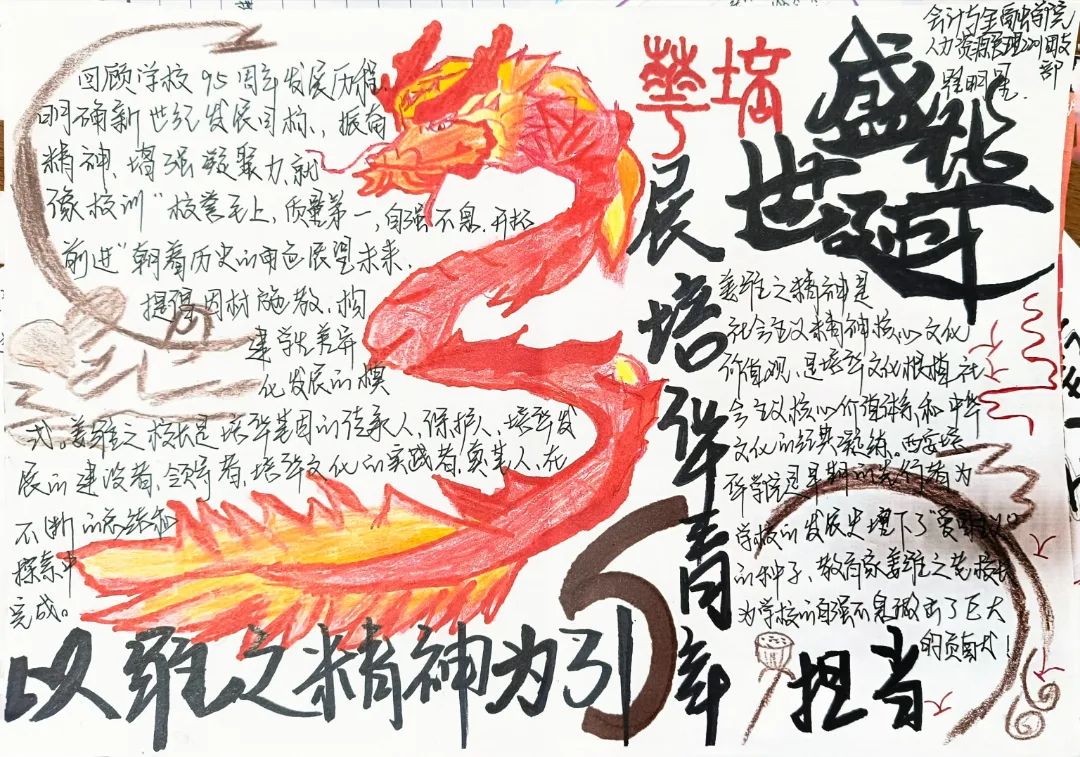 会计与金融学院
人力资源管理
支部
華培
盛世
华诞
回顾学校95周年发展历程,
明确新世纪发展目标,振奋
精神、增强凝聚力、就
像校训"校誉至上,质量第一,自强不息,开拓
前进"朝着历史的角色展望未来,
提倡因材施教,构
建学生差异
化发展的模
式。姜维之校长是培华基因的传承人,保护人,培华发
展的建设者、领导者,培华文化的实践者,奠基人,在
不断的总结和
探索中
完成。
姜维之精神是
社会主义精神核心文化
价值观,是培华文化根植社
会主义核心价值体系和中华
文化的经典凝练。西安培
华学院是早期的先行者为
学校的发展史埋下了"爱
的种子、教育家姜维之老校长
为学校的自强不息做出了巨大
的贡献!
以维之精神为引
展培华青年
担当